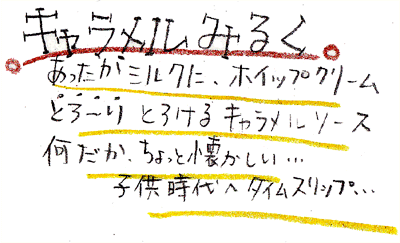 キャラメルみるく
あったかミルクに、ホイップクリーム
とろ〜り とろける キャラメルソース
何だか、ちょっと懐かしい…
子供時代へタイムスリップ…